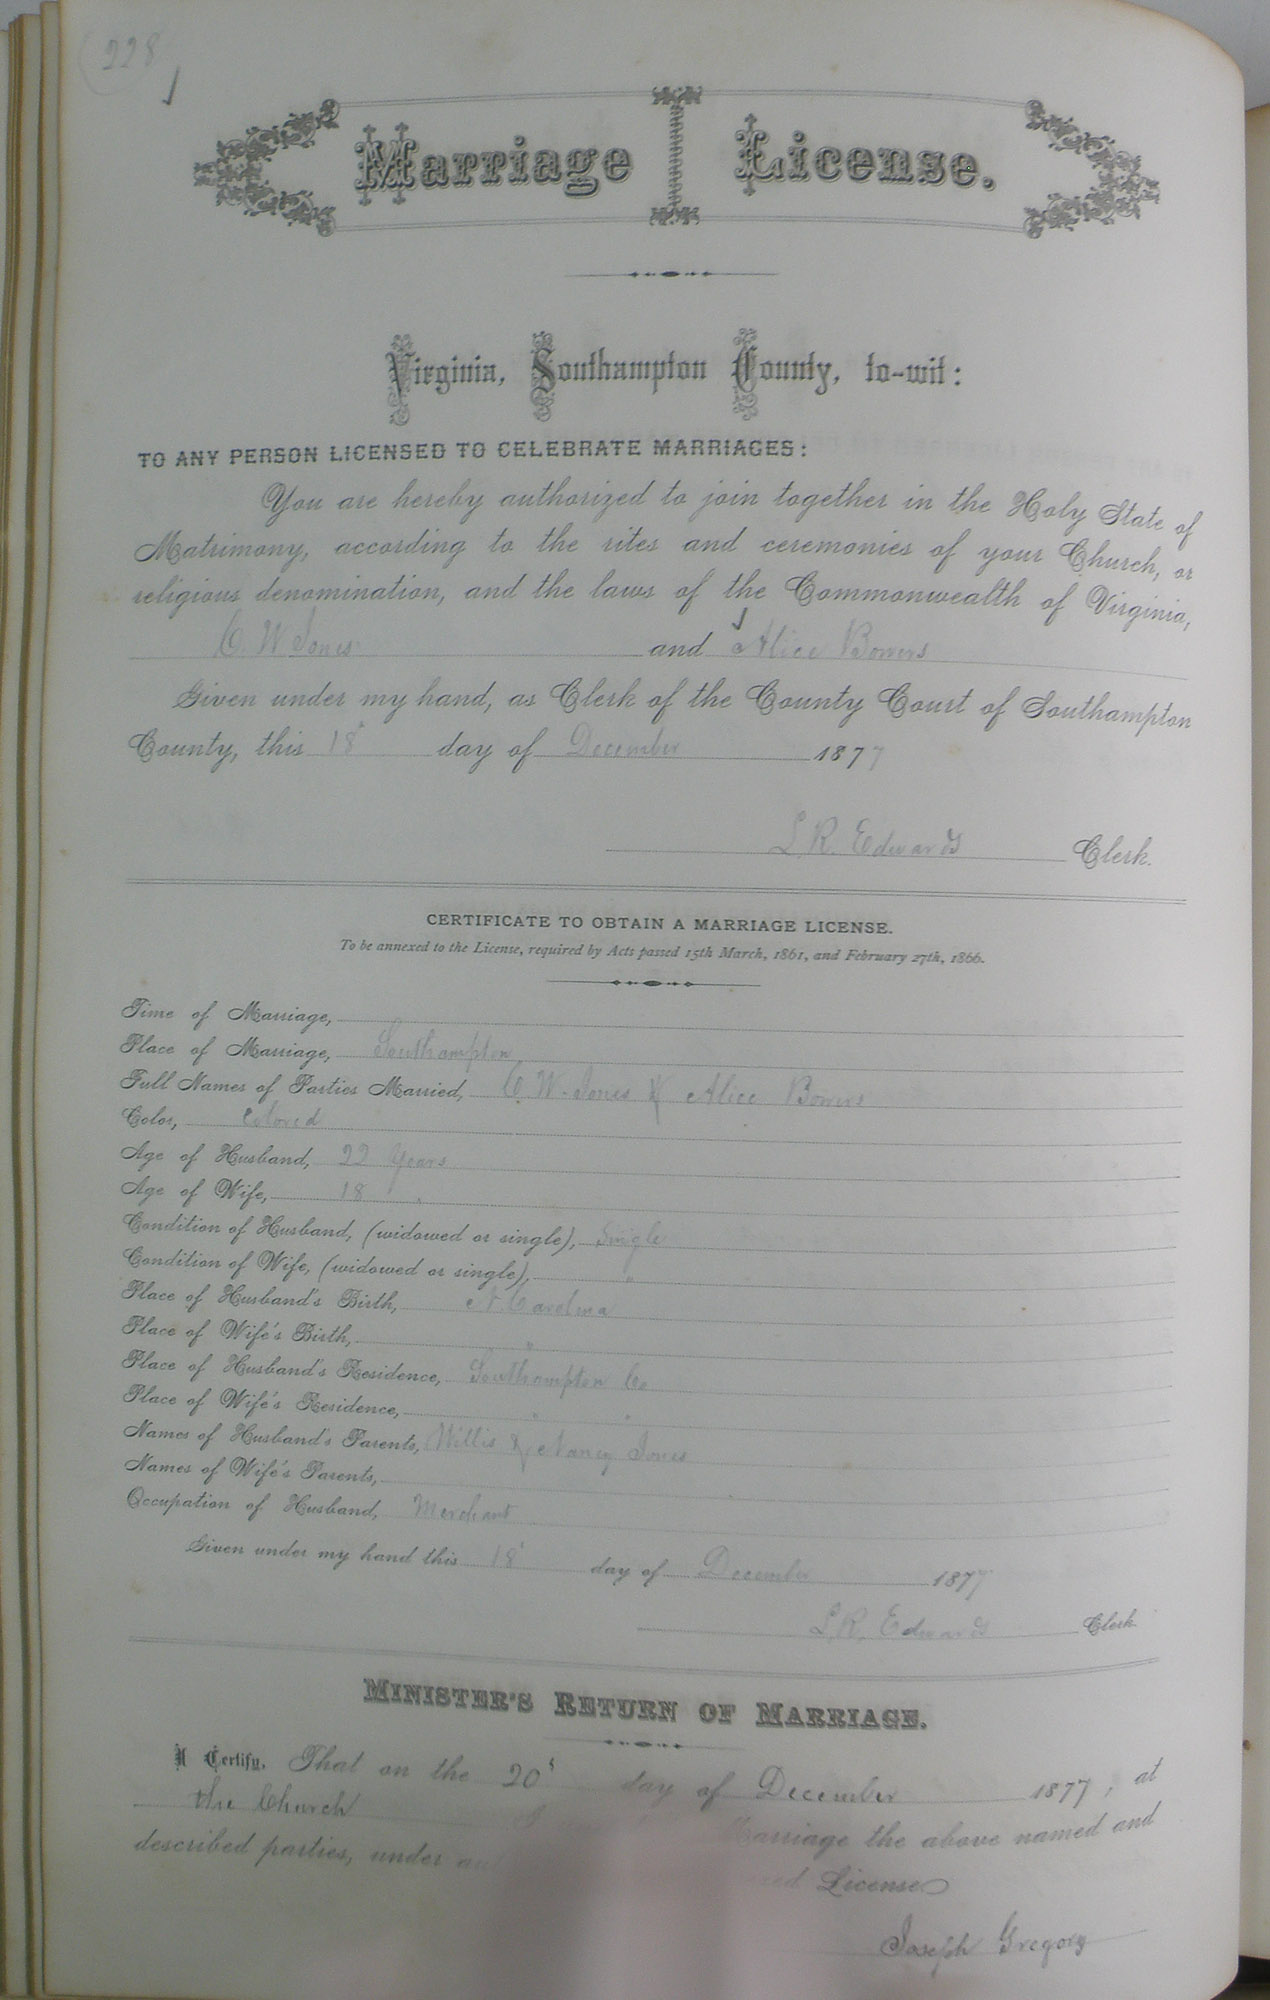 228
Marriage License.
Virginia, Southampton County, to-wit:
TO ANY PERSON LICENSED TO CELEBRATE MARRIAGES:
You are hereby authorized to join together in the Holy State of
Matrimony, according to the rites and ceremonies of your Church, or
religious denomination, and the laws of the Commonwealth of Virginia,
C. W Jones and Alice Bowers
Given under my hand, as Clerk of the County Court of Southampton
County, this 18 day of December 1877
L. R. Edwards Clerk.
CERTIFICATE TO OBTAIN A MARRIAGE LICENSE.
To be annexed to the License, required by Acts passed 15th March, 1861, and February 27th, 1866.
Time of Marriage,
Place of Marriage, Southampton
Full Names of Parties Married, C. W. Jones & Alice Bowers
Color, Colored
Age of Husband, 22 Years
Age of Wife, 18 "
Condition of Husband, (widowed or single), Single
Condition of Wife, (widowed or single), "
Place of Husband's Birth, N. Carolina
Place of Wife's Birth, "
Place of Husband's Residence, Southampton Co
Place of Wife's Residence, " "
Names of Husband's Parents, Willis & Nancy Jones
Names of Wife's Parents,
Occupation of Husband, Merchant
Given under my hand this 18 day of December 1877
L. R. Edwards Clerk
MINISTER'S RETURN OF MARRIAGE.
I Certify, That on the 20 day of December 1877, at
the Church Marriage the above named and
described parties, under License
Joseph Gregory